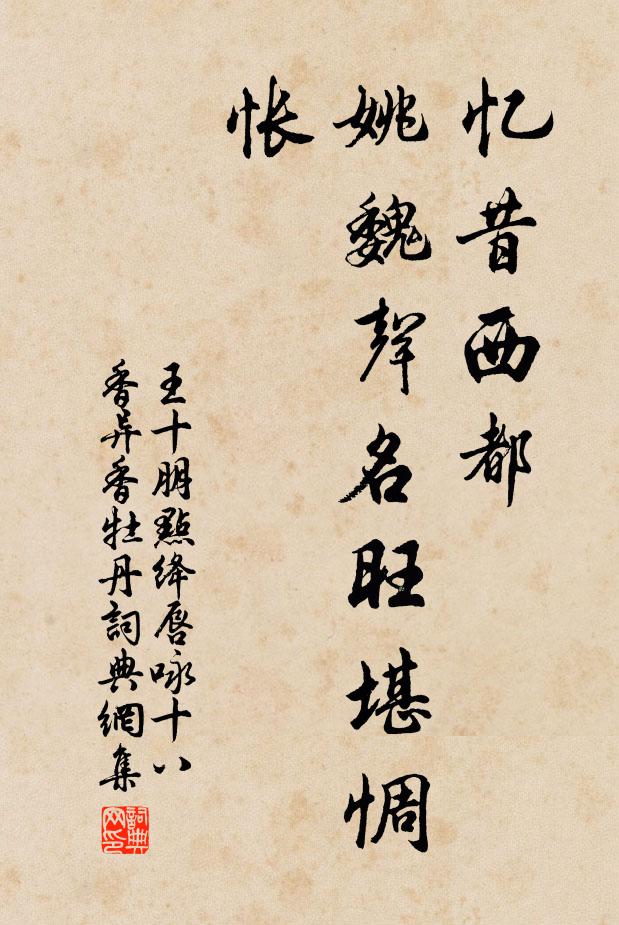 忆昔西都
姚魏声名旺堪惆
怅
王十朋點绛唇咏十八
香异香牡丹詞典網集
詞典网印